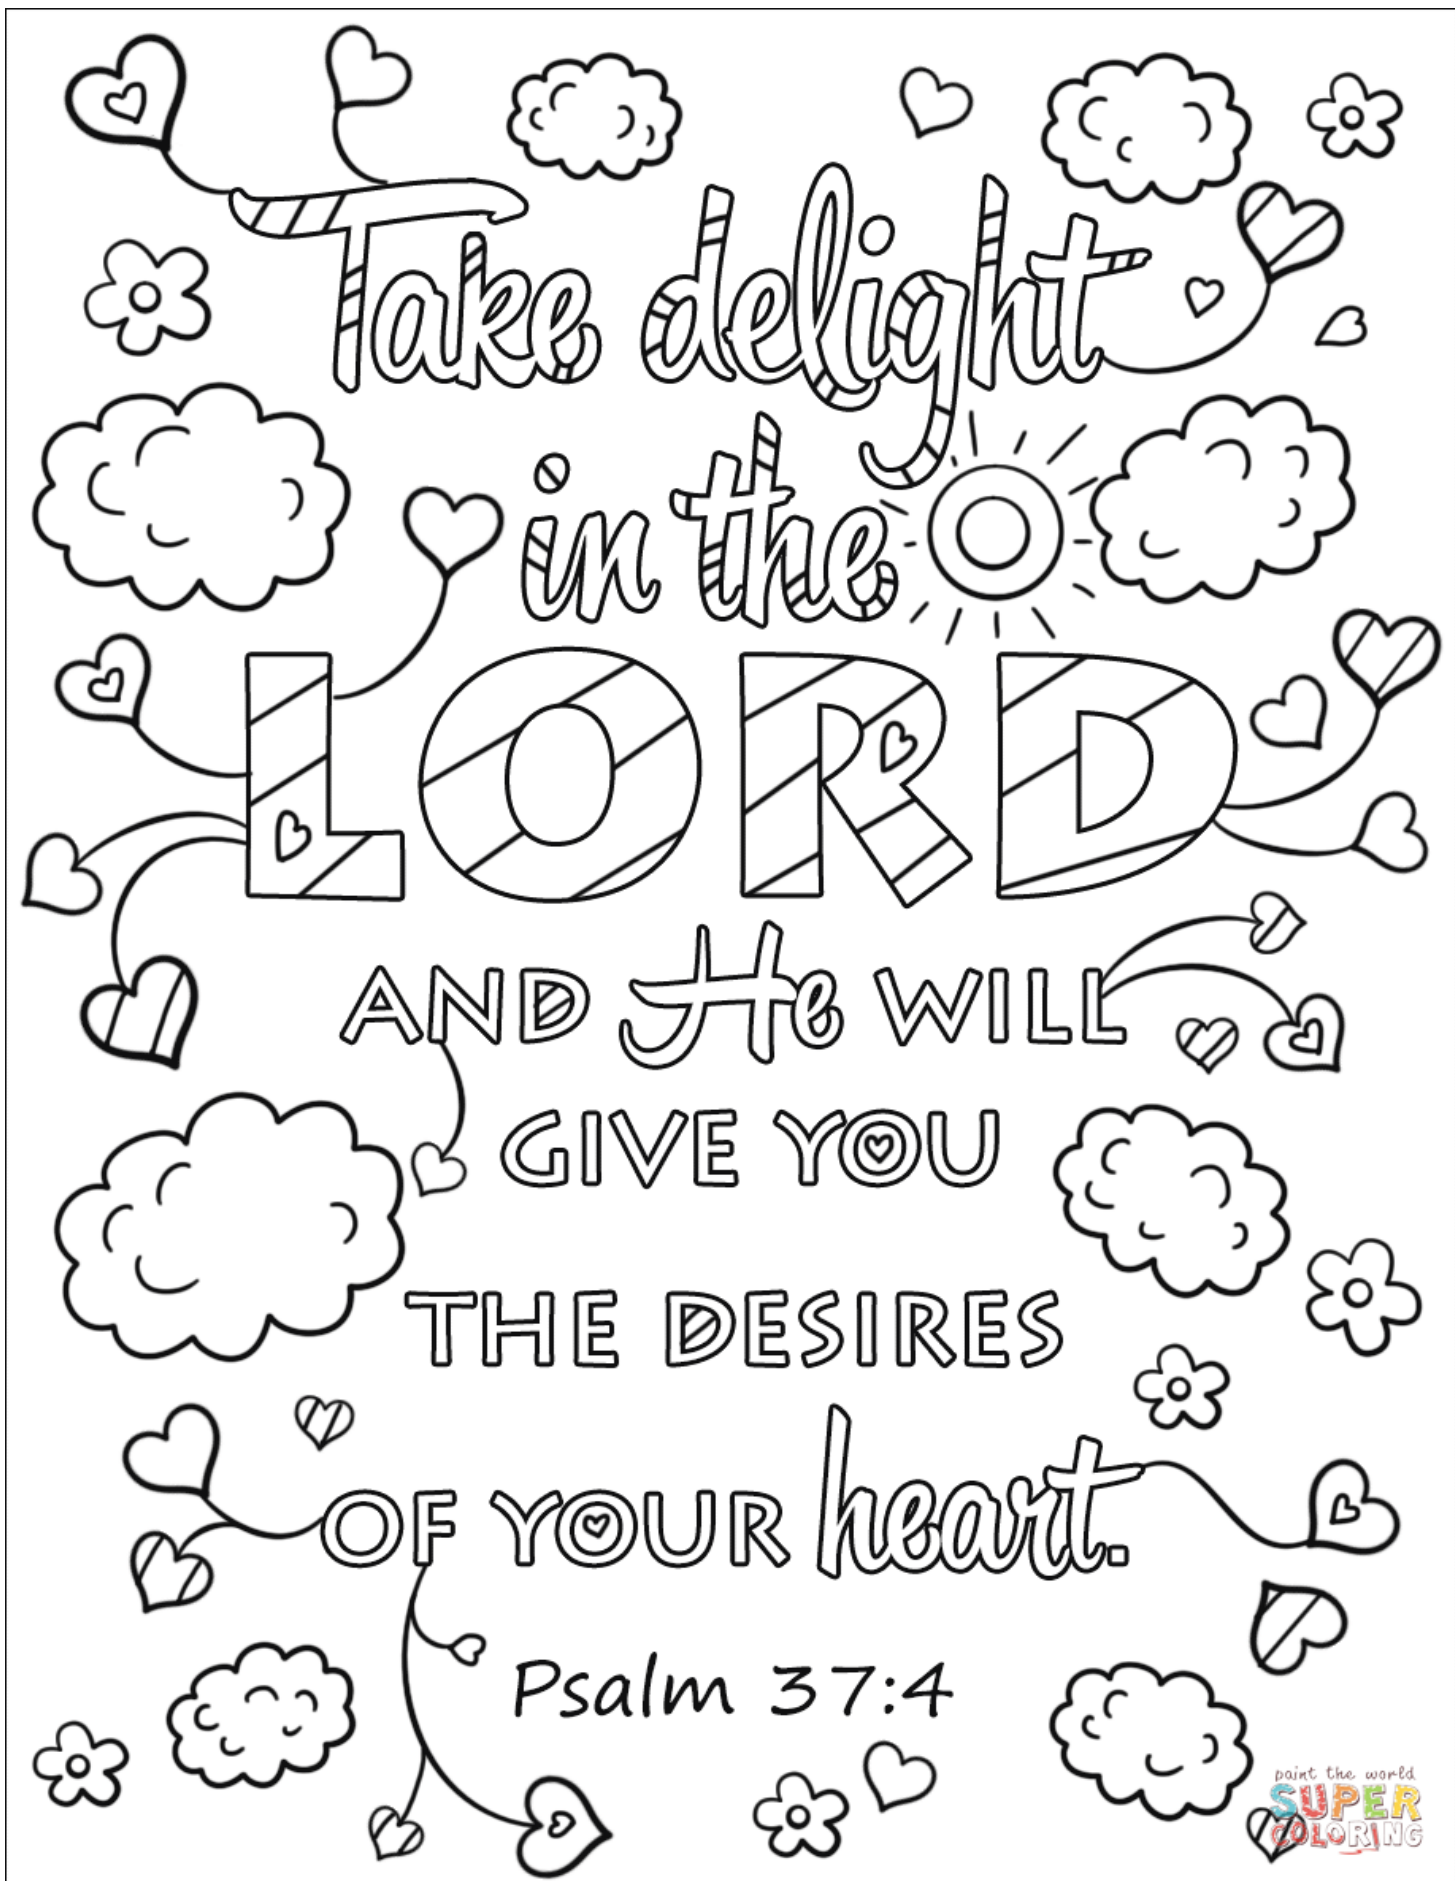 Take delight
in the
LORD
AND He WILL
GIVE YOU
THE DESIRES
OF YOUR heart.
Psalm 37:4
paint the world
SUPER
COLORING